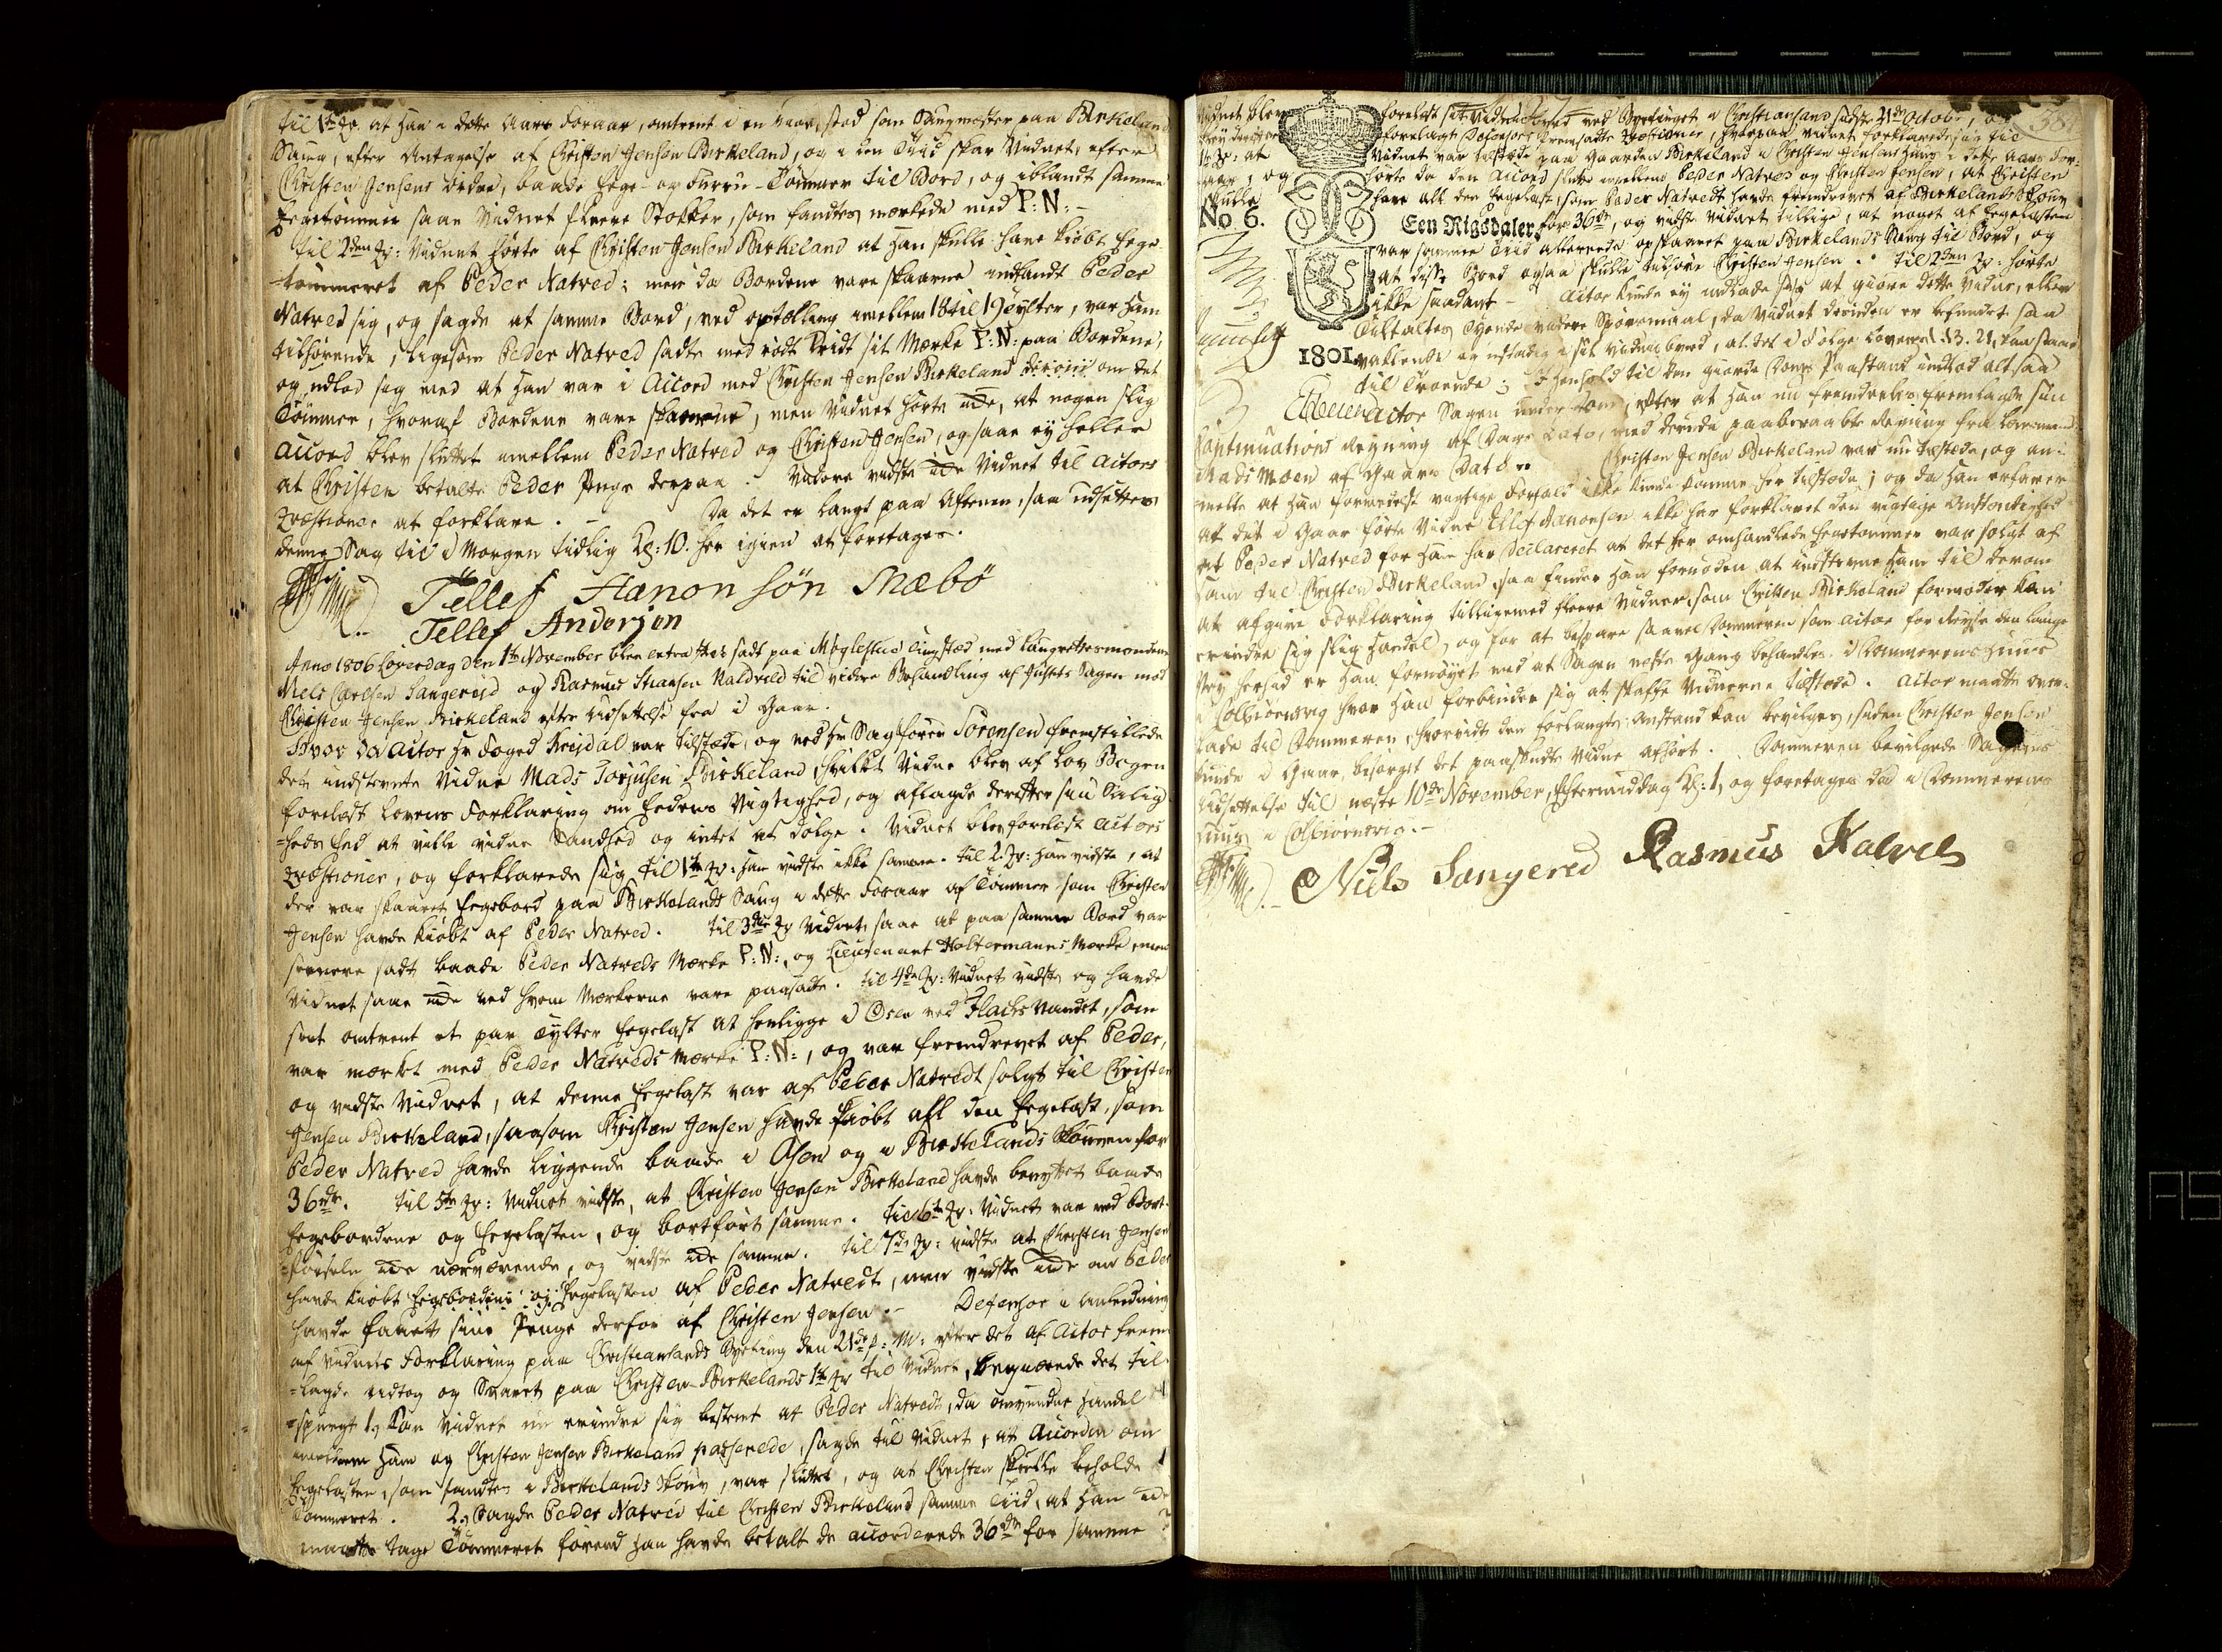 til 1te Qv: at han i dette Aars Foraar, omtrent i en Maan, stod som Saugmester paa Birkeland
Saug, efter Antagelse af Christen Jensen Birkeland, og i den Tiid skar Vidnet, efter
Christen Jensens Ordre, baade Eege- og Furru-Tømmer til Bord, og iblandt samme
Eegetømmer saae Vidnet fleere Stokker, som fandtes mærkede med P: N: -
til 2den Qv: Vidnet hørte af Christen Jensen Birkeland at han skulle have kiøbt Eege
-tømmeret af Peder Natved; men da Bordene vare skaarne indfandt Peder
Natved sig, og sagde at samme Bord, ved optælling imellem 18 til 19 Tylter, var ham
tilhørende, ligesom Peder Natved satte med rødt Kridt sit Mærke P: N: paa Bordene,
og udlod sig med at han var i Accord med Christen Jensen Birkeland om det
Tømmer, hvoraf Bordene vare skaarne, men Vidnet hørte icke, at nogen slig
Accord blev sluttet imellem Peder Natved og Christen Jensen, og saae ey heller
at Christen betalte Peder Penge derpaa. Videre vidste icke Vidnet til Actors
Qvæstioner at forklare. - Da det er langt paa Aftenen, saa udsættes
denne Sag til i Morgen tidlig Kl: 10. her igien at foretages.
Tellef Aanon søn Mæbø
Tellef Andersen
Anno 1806 Løverdag den 1te November blev extra Rett sadt paa Møglestue Tingsted med Laugrettesmændene
Niels Carlsen Sangereid og Rasmus Staansen Kaldveld til videre Behandling af Justits Sagen mod
Christen Jensen Birkeland efter Udsættelse fra i Gaar.
Hvor da Actor Hr Foged Kreydal var tilstæde, og ved Hr Sagfører Sørensen fremstillede
det indstevnte Vidne Mads Torjusen Birkeland, hvilket Vidne blev af Lov Bogen
forelæst Lovens Forklaring om Eedens Vigtighed, og aflagde derefter sin Salig-
-heds Eed at ville vidne Sandhed og intet at dølge. Vidnet blev forelæst Actors
Qvæstioner, og forklarede sig til 1te Qv: han vidste ikke samme. til 2. Qv: han vidste, at
der var skaaret Eegebord paa Birkelands Saug i dette Foraar af Tømmer som Christen
Jensen havde kiøbt af Peder Natved. til 3die Qv Vidnet saae at paa samme Bord var
sennere sadt baade Peder Natveds Mærke P: N:, og Lieutenant Holtermanns Mærke, men
Vidnet saae icke ved hvem Mærkerne vare paasadte. til 4de Qv: Vidnet vidste og havde
seet omtrent et par Tylter Eegelast at henligge i Osen ved Flacksvandet, som
var mærket med Peder Natveds Mærke P: N:, og var fremdrevet af Peder,
og vidste Vidnet, at denne Eegelast var af Peder Natvedt solgt til Christen
Jensen Birkeland, saasom Christen Jensen havde kiøbt all den Eegelast, som
Peder Natved havde liggende baade i Osen og i Birkelands Skouven for
36 rdr. til 5te Qv: Vidnet vidste, at Christen Jensen Birkeland havde benyttet baade
Eegebordene og Eegelasten, og bortført samme. til 6te Qv: Vidnet var ved Bort-
-førseln icke nærværende, og vidste icke samme. til 7de Qv: vidste at Christen Jensen
havde kiøbt Eegebordene og Eegelasten af Peder Natvedt, men vidste icke om Peder
havde faaet sine Penge derfor af Christen Jensen. - Defensor i Anledning
af Vidnets Forklaring paa Christiansands Byeting den 21de p: M: efter det af Actor frem-
-lagde Udtog og Svaret paa Christen Birkelands 1te Qv til Vidnet, begærede det til-
-spurgt 1, Kan Vidnet nu erindre sig bestemt at Peder Natvedt, da omvundne Handel
imellem ham og Christen Jensen Birkeland passerede, sagde til Vidnet, at Accorden om
Eegelasten, som fandtes i Birkelands Skouv, var sluttet, og at Christen skulle beholde
Tømmeret. 2, Sagde Peder Natved til Christen Birkeland samme Tiid, at han icke
maatte tage Tømmeret førend han havde betalt de accorderede 36 rdr for samme
Vidnet blev forelæst sit Vidnesbyrd ved Byetinget i Christiansand sidste 21de Octobr, og
forelagt Defensors fremsadte Qvæstioner, hvorpaa Vidnet forklarede sig til
1te Qv: at Vidnet var tilstæde paa Gaarden Birkeland i Christen Jensens Huus i dette Aars For-
-aar, og hørte da den Accord sluttet imellem Peder Natved og Christen Jensen, at Christen
skulle have all den Eegelast, som Peder Natvedt havde fremdrevet af Birkelands Skouv
No 6. Een Rigsdaler for 36 rdr, og vidste Vidnet tillige, at noget af Eegelasten
var samme Tiid allerede opskaaret paa Birkelands Saug til Bord, og
at disse Bord ogsaa skulle tilhøre Christen Jensen. - til 2den Qv: hørte
ikke saadant - Actor kunde ey indlade sig at giøre dette Vidne, eller
Tiltaltes Tyende videre Spørsmaal, da Vidnet desuden er befundet saa
1801 vaklende og ustadig i sit Vidnesbyrd, at det i Følge Lovens 1. 13. 21, kan staae
til Troende; I Henhold til den giorde Doms Paastand indlod altsaa
Actor Sagen under Dom, efter at han nu fremdeeles fremlagde sin
Continuations Regning af Dags Dato, med derudi paaberaabte Regning fra Lensmand
Mads Moen af Gaars Dato. Christen Jensen Birkeland var nu tilstæde, og an-
-meldte at han formedelst vigtige Forfald ikke kunde komme her tilstæde; og da han erfarer
at det i Gaar førte Vidne Tellef Aanonsen ikke har forklaret den vigtige Omstændighed
at Peder Natved for ham har declareret at det her omhandlede Eegetømmer var solgt af
ham til Christen Birkeland, saa finder han fornøden at indstevne ham til derom
at afgive Forklaring tilligemed fleere Vidner, som Christen Birkeland formoder kan
erindre sig slig Handel, og for at bespare saavel Dommeren som Actor for Reyse den lange
Vey herhid er han fornøyet med at Sagen næste Gang behandles i Dommerens Huus
i Colbiørnsvig hvor han forbinder sig at skaffe Vidnerne tilstæde. Actor maatte over-
-lade til Dommeren, hvorvidt den forlangte Anstand kan bevilges, siden Christen Jensen
kunde i Gaar besørget det paaskudte Vidne afhørt. Dommeren bevilgede Sagens
Udsættelse til næste 10de November, Eftermiddag Kl: 1, og foretages da i Dommerens
Huus i Colbiørnsvig. -
Niels Sangered Rasmus Kalvel